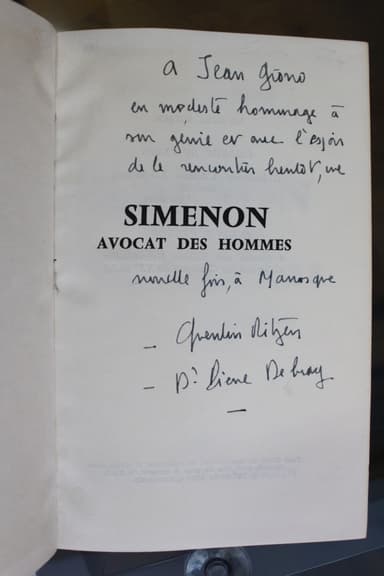 A Jean Giono
en modeste hommage à
son génie et avec l'espoir
de le rencontrer bientôt, une
SIMENON
AVOCAT DES HOMMES
nouvelle fois, à Manosque
— Quentin Ritzen
— Dr Pierre Debray